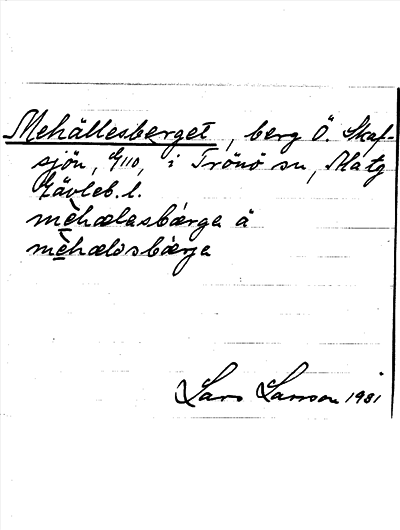 Mehällesberget, berg Ö. Skaf-
sjön, G110, i Trönö sn,
Gävleb. l.
mèhælasbárga å
mèhælisbárga
Lars Larsson 1981